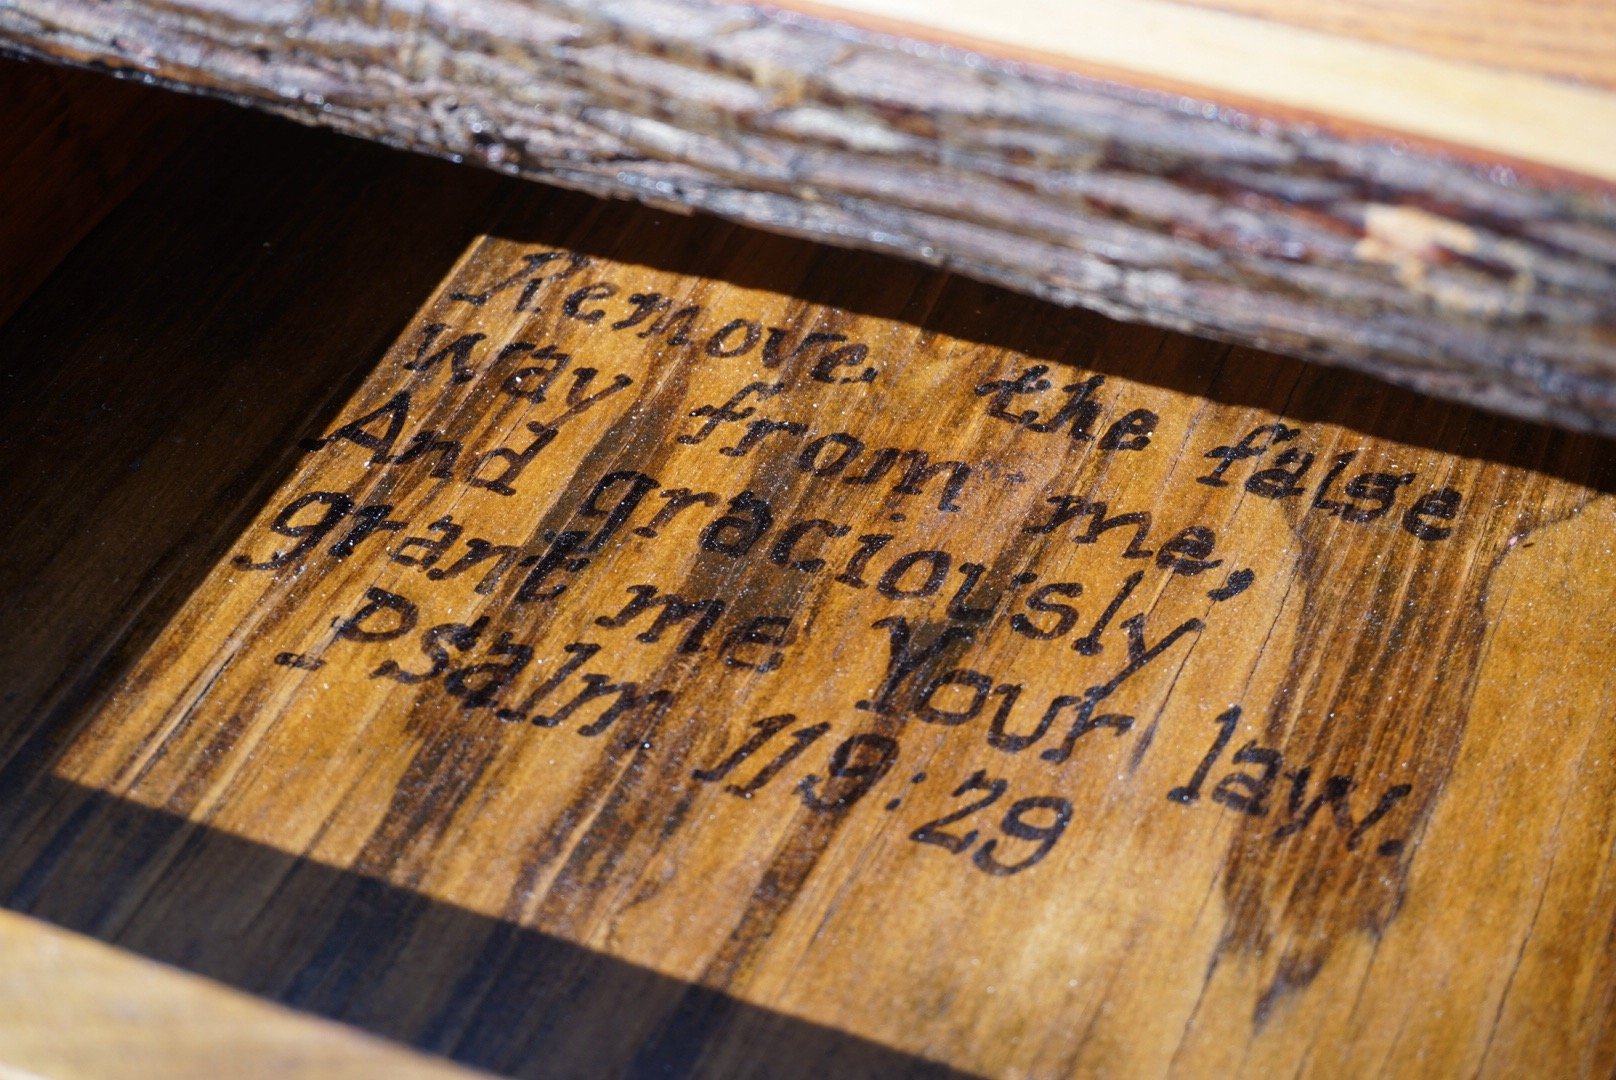 Remove the false
way from me,
And graciously
grant me Your law.
- Psalm 119:29